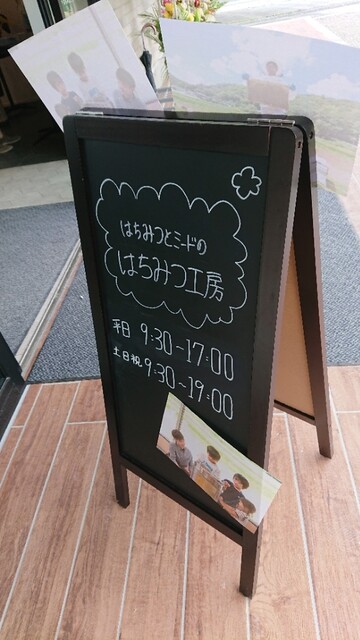 はちみつとミードの
はちみつ工房
平日 9:30~17:00
土日祝 9:30~19:00